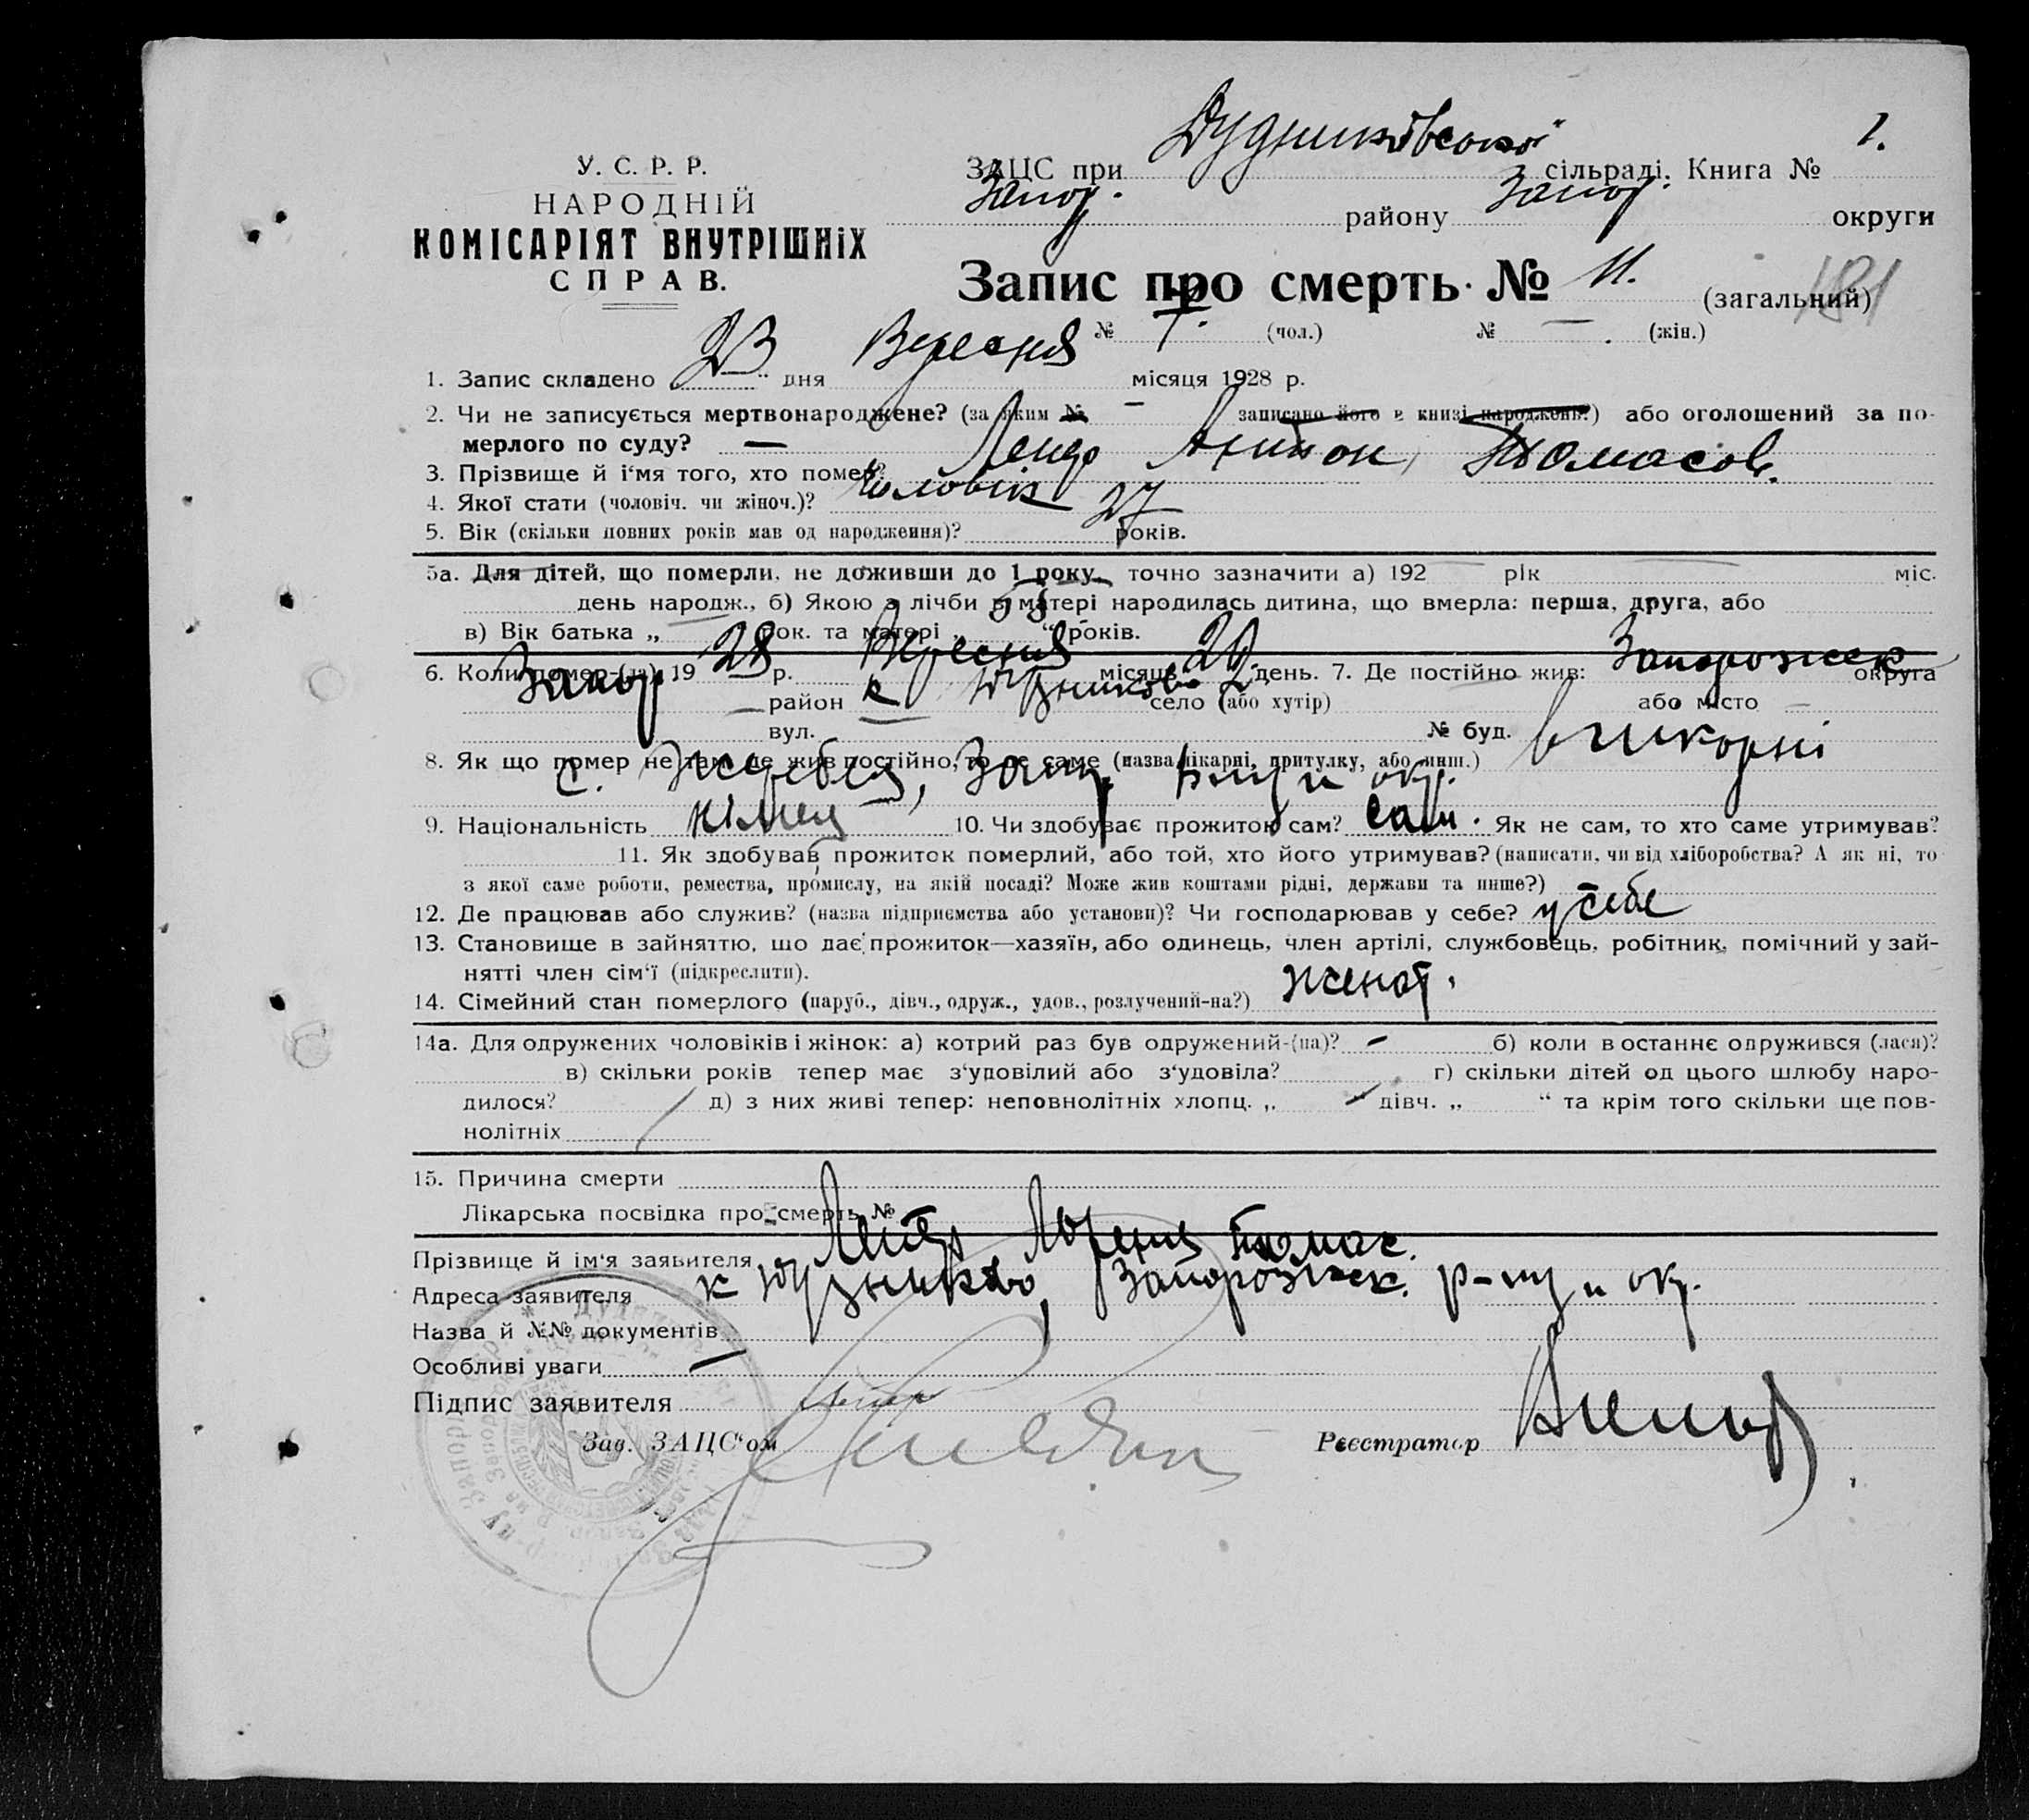 У. С. Р. Р.
НАРОДНІЙ
КОМІСАРІЯТ ВНУТРІШНІХ
СПРАВ.
ЗАЦС при Дудниківської сільраді. Книга № 1.
Запор. району Запор. округи
Запис про смерть № 11. (загальний) 181
№ 7. (чол.) № — (жін.)
1. Запис складено 23 дня Вересня місяця 1928 р.
2. Чи не записується мертвонароджене? (за яким № — записано його в книзі народжень?) або оголошений за по-
мерлого по суду? —
3. Прізвище й і'мя того, хто помер? Антон Томасов.
4. Якої стати (чоловіч. чи жіноч.)? Чоловік
5. Вік (скільки повних років мав од народження)? 27 років.
5а. Для дітей, що померли, не доживши до 1 року, точно зазначити а) 192 рік міс.
день народж., б) Якою з лічби в матері народилась дитина, що вмерла: перша, друга, або
в) Вік батька „ рок. та матері „ “ років.
6. Коли помер-(ла) 19 28 р. Вересня місяця 20 день. 7. Де постійно жив: Запорожск округа
Запор район к село (або хутір) або місто —
— вул. — № буд.
8. Як що помер не там, де жив постійно, то де саме (назва лікарні, притулку, або инш.)
с. Жеребец, Запор. р-ну и окр.
9. Національність німец 10. Чи здобуває прожиток сам? сам. Як не сам, то хто саме утримував?
11. Як здобував прожиток померлий, або той, хто його утримував? (написати, чи від хліборобства? А як ні, то
з якої саме роботи, ремества, промислу, на якій посаді? Може жив коштами рідні, держави та инше?)
12. Де працював або служив? (назва підприємства або установи)? Чи господарював у себе? у себе
13. Становище в зайняттю, що дає прожиток—хазяїн, або одинець, член артілі, службовець, робітник, помічний у зай-
нятті член сім'ї (підкреслити).
14. Сімейний стан померлого (паруб., дівч., одруж., удов., розлучений-на?) женат.
14а. Для одружених чоловіків і жінок: а) котрий раз був одружений-(на)? — б) коли востаннє одружився (лася)?
в) скільки років тепер має з'уповілий або з'удовіла? г) скільки дітей од цього шлюбу наро-
дилося? д) з них живі тепер: неповнолітніх хлопц. „ дівч. „ “ та крім того скільки ще пов-
нолітніх
15. Причина смерти
Лікарська посвідка про смерть №
Прізвище й ім'я заявителя Томас.
Адреса заявителя к Запорожск. р-ну и окр.
Назва й №№ документів
Особливі уваги —
Підпис заявителя
Зав. ЗАЦС'ом Реєстратор